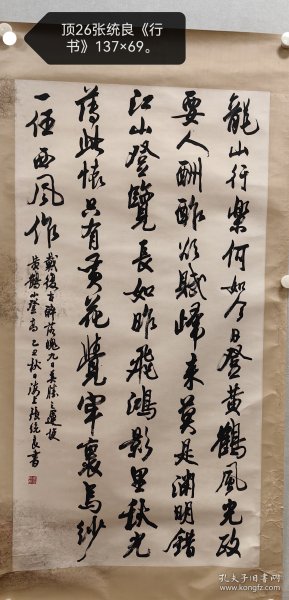 顶26张统良《行
书》137×69。
龍山行樂何如今日登黄鶴風光政
要人酬酢欲賦歸来莫是渊明錯
江山登覽長如昨飛鴻影里秋光
薄此懷只有黄花覺牢裏烏紗
一任西風作
戴復古醉落魄九日吴勝之運使
黄鶴山登高乙丑秋日海上張统良書
孔夫子旧书网
kongfz.com